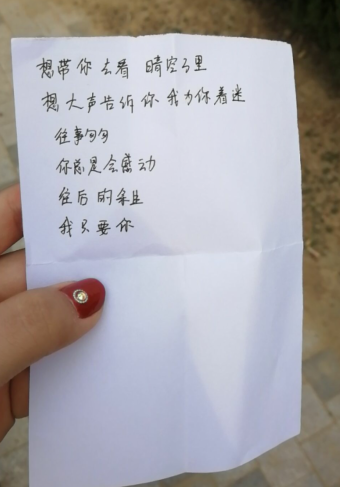 想带你去看 晴空万里
想大声告诉你 我为你着迷
往事匆匆
你总是会感动
往后的余生
我只要你